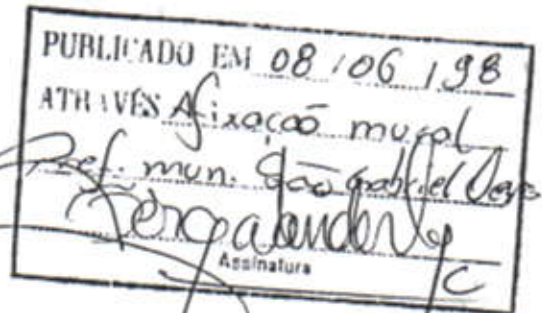 PUBLICADO EM 08/06/98
ATRAVÉS Afixação mural
Pref. mun. São Gabriel
Assinatura